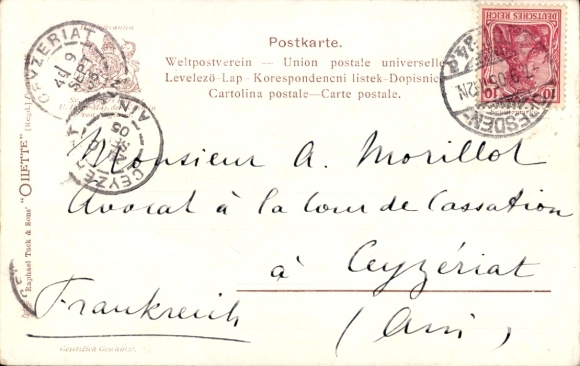 Postkarte.
Weltpostverein — Union postale universelle
Levelező-Lap - Korespondencni listek-Dopisnice
Cartolina postale—Carte postale.
DEUTSCHES REICH
10 10
DRESDEN
CEYZERIAT
AIN
Raphael Tuck & Sons' "OILETTE" [Regd.]
Monsieur A. Morillot
Avocat à la Cour de Cassation
à Ceyzériat
Frankreich (Ain)
Gesetzlich Geschützt.